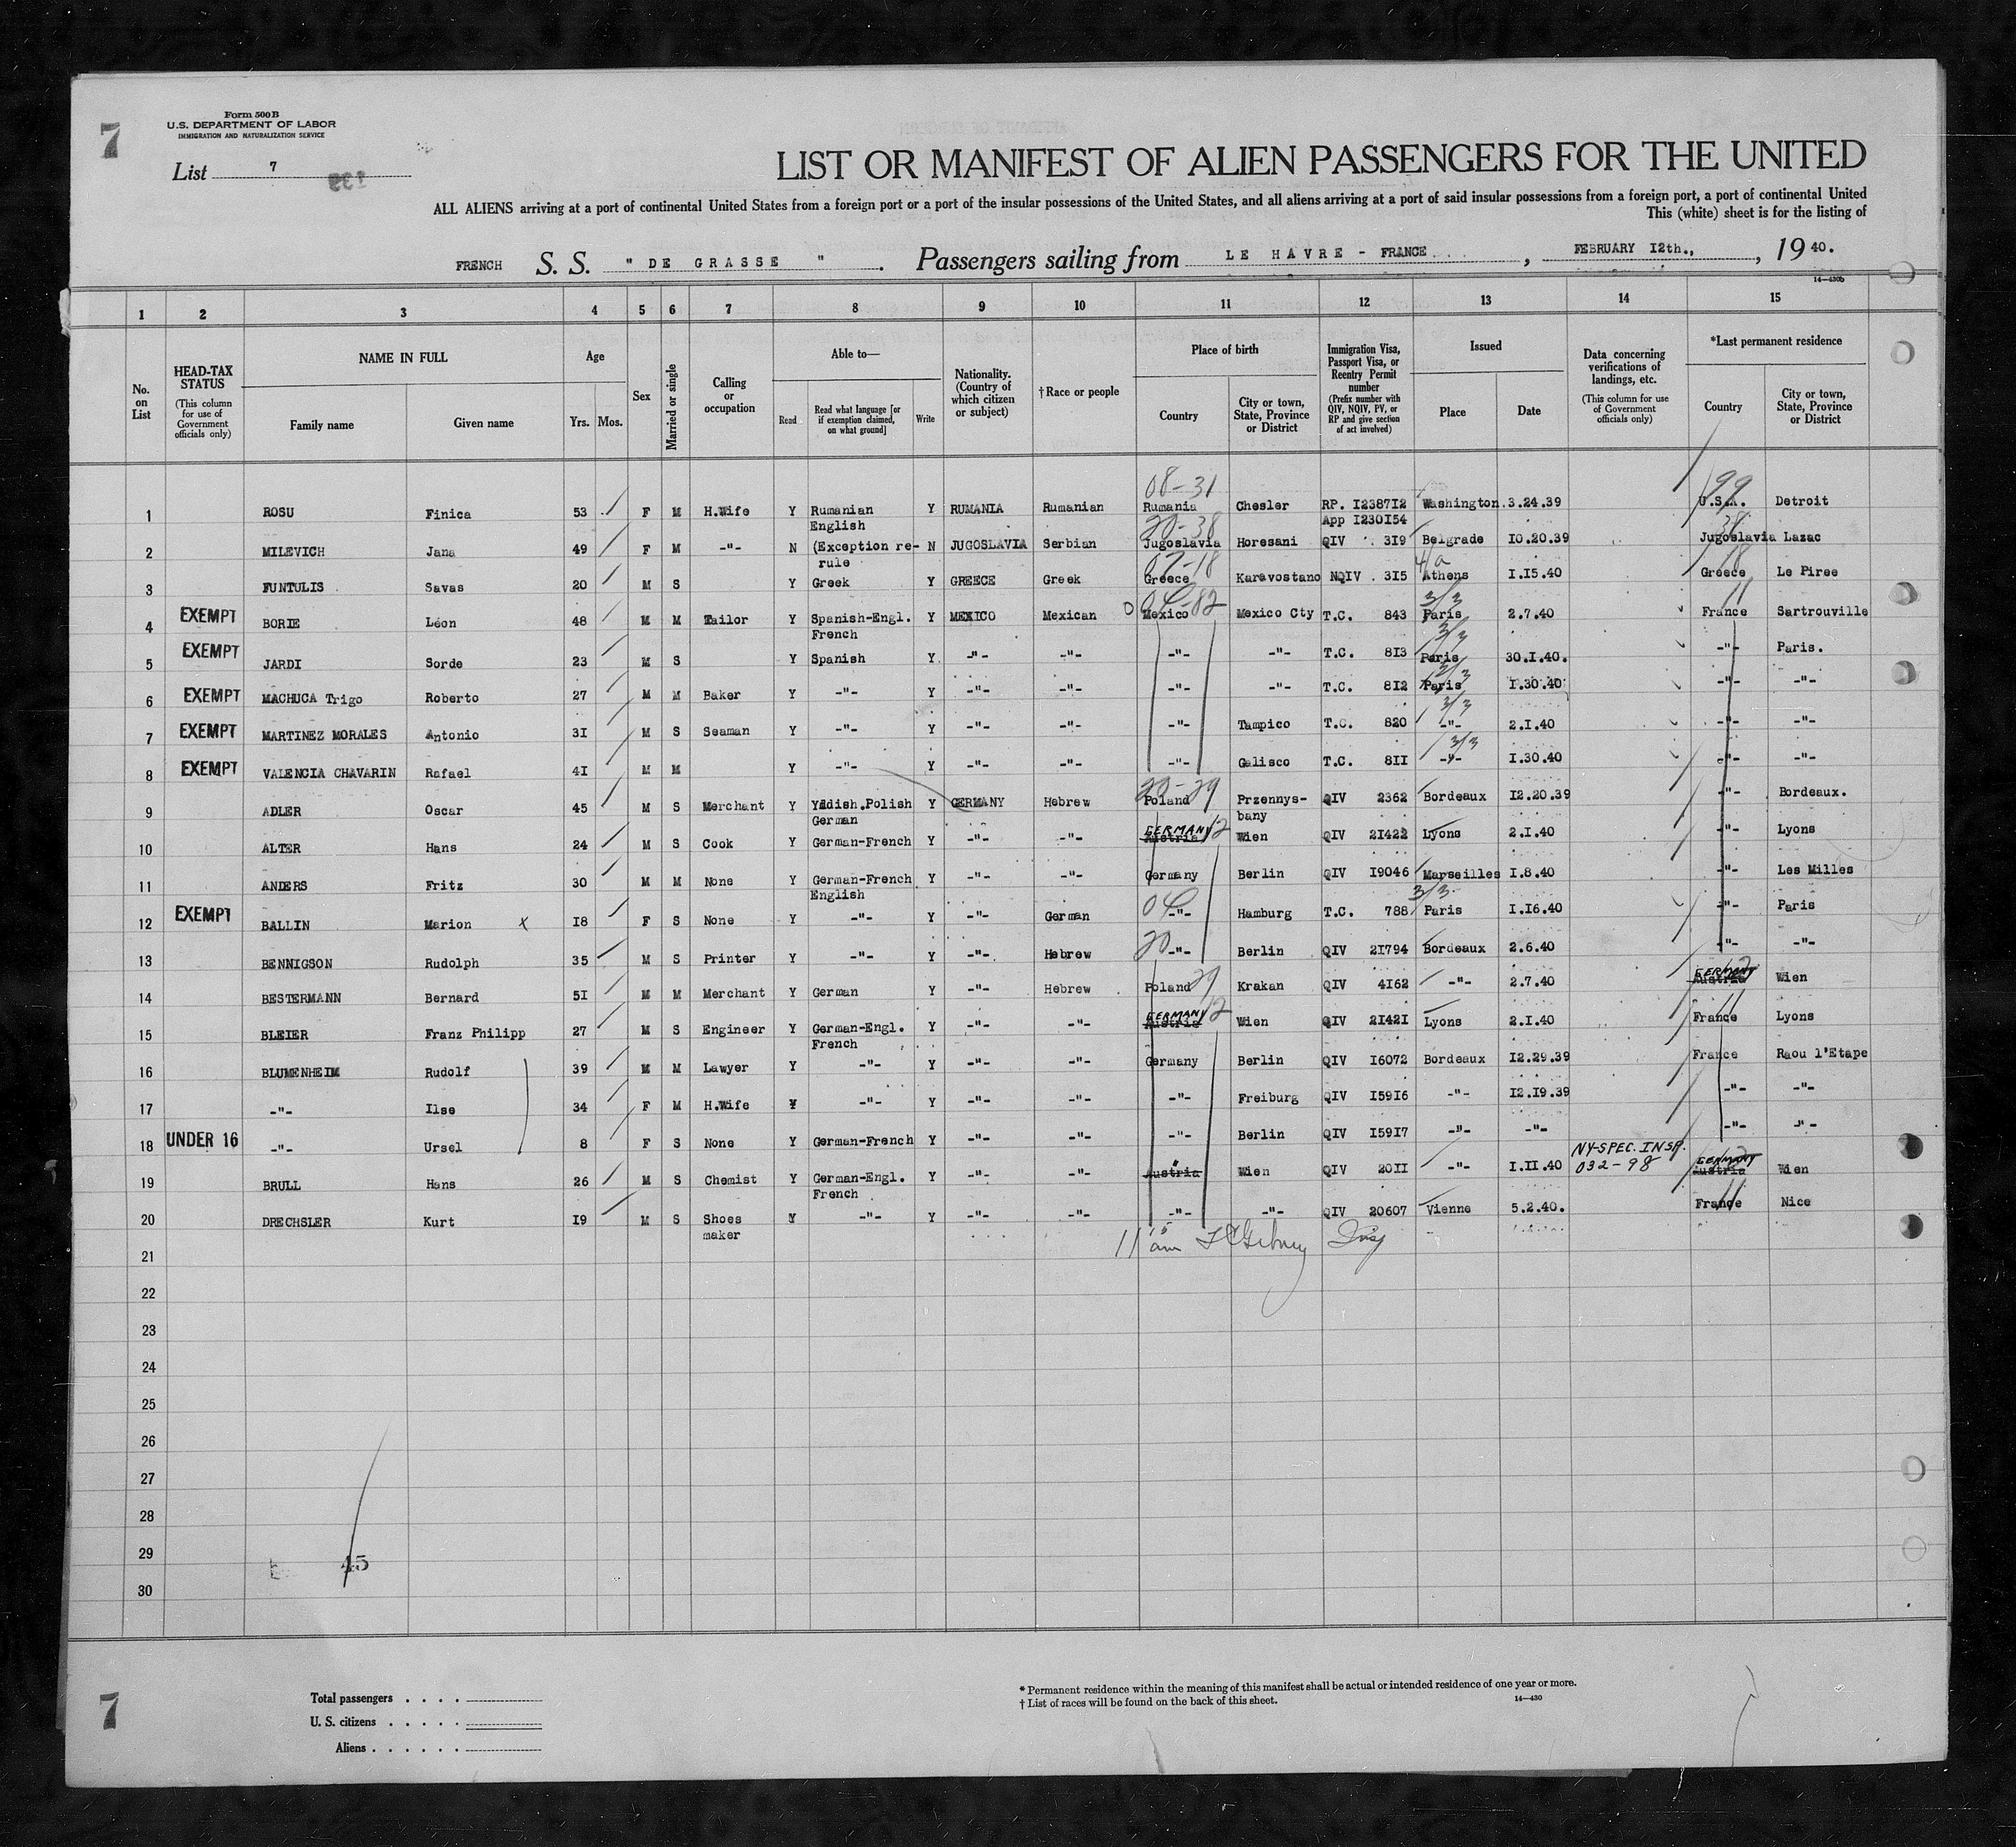 7
Form 500 B
U.S. DEPARTMENT OF LABOR
IMMIGRATION AND NATURALIZATION SERVICE
List 7
LIST OR MANIFEST OF ALIEN PASSENGERS FOR THE UNITED
ALL ALIENS arriving at a port of continental United States from a foreign port or a port of the insular possessions of the United States, and all aliens arriving at a port of said insular possessions from a foreign port, a port of continental United
This (white) sheet is for the listing of
FRENCH S. S. " DE GRASSE " . Passengers sailing from LE HAVRE - FRANCE , FEBRUARY 12th., , 19 40.
14—430b
1 2 3 4 5 6 7 8 9 10 11 12 13 14 15
No. on List
HEAD-TAX STATUS (This column for use of Government officials only)
NAME IN FULL
Family name Given name
Age
Yrs. Mos.
Sex
Married or single
Calling or occupation
Able to—
Read Read what language [or if exemption claimed, on what ground] Write
Nationality. (Country of which citizen or subject)
† Race or people
Place of birth
Country City or town, State, Province or District
Immigration Visa, Passport Visa, or Reentry Permit number (Prefix number with QIV, NQIV, PV, or RP and give section of act involved)
Issued
Place Date
Data concerning verifications of landings, etc. (This column for use of Government officials only)
*Last permanent residence
Country City or town, State, Province or District
08-31 99
1 ROSU Finica 53 F M H.Wife Y Rumanian Y RUMANIA Rumanian Rumania Chesler RP. I2387I2 Washington 3.24.39 U.S.A. Detroit
English App I230I54
20-38 38
2 MILEVICH Jana 49 F M -"- N (Exception re- N JUGOSLAVIA Serbian Jugoslavia Horesani QIV 3I9 Belgrade I0.20.39 Jugoslavia Lazac
rule
07-18 4/a 18
3 FUNTULIS Savas 20 M S Y Greek Y GREECE Greek Greece Karavostano NQIV . 3I5 Athens I.I5.40 Greece Le Piree
04-82 3/3 11
4 EXEMPT BORIE Léon 48 M M Tailor Y Spanish-Engl. Y MEXICO Mexican Mexico Mexico Cty T.C. 843 Paris 2.7.40 France Sartrouville
French 3/3
5 EXEMPT JARDI Sorde 23 M S Y Spanish Y -"- -"- -"- -"- T.C. 8I3 Paris 30.I.40. -"- Paris.
3/3
6 EXEMPT MACHUCA Trigo Roberto 27 M M Baker Y -"- Y -"- -"- -"- -"- T.C. 8I2 Paris I.30.40 -"- -"-
3/3
7 EXEMPT MARTINEZ MORALES Antonio 3I M S Seaman Y -"- Y -"- -"- -"- Tampico T.C. 820 -"- 2.I.40 -"- -"-
3/3
8 EXEMPT VALENCIA CHAVARIN Rafael 4I M M Y -"- Y -"- -"- -"- Galisco T.C. 8II -"- I.30.40 -"- -"-
20-29
9 ADLER Oscar 45 M S Merchant Y Yidish.Polish Y GERMANY Hebrew Poland Przennys- QIV 2362 Bordeaux I2.20.39 -"- Bordeaux.
German bany
GERMANY 12
10 ALTER Hans 24 M S Cook Y German-French Y -"- -"- Austria Wien QIV 2I422 Lyons 2.I.40 -"- Lyons
11 ANDERS Fritz 30 M M None Y German-French Y -"- -"- Germany Berlin QIV I9046 Marseilles I.8.40 -"- Les Milles
English 3/3
12 EXEMPT BALLIN Marion x I8 F S None Y -"- Y -"- German 04 -"- Hamburg T.C. 788 Paris I.I6.40 -"- Paris
13 BENNIGSON Rudolph 35 M S Printer Y -"- Y -"- Hebrew 20 -"- Berlin QIV 2I794 Bordeaux 2.6.40 -"- -"-
GERMANY 12
14 BESTERMANN Bernard 5I M M Merchant Y German Y -"- Hebrew Poland 29 Krakan QIV 4I62 -"- 2.7.40 Austria Wien
GERMANY 12 11
15 BLEIER Franz Philipp 27 M S Engineer Y German-Engl. Y -"- -"- Austria Wien QIV 2I42I Lyons 2.I.40 France Lyons
French
16 BLUMENHEIM Rudolf 39 M M Lawyer Y -"- Y -"- -"- Germany Berlin QIV I6072 Bordeaux I2.29.39 France Raou l'Etape
17 -"- Ilse 34 F M H.Wife Y -"- Y -"- -"- -"- Freiburg QIV I59I6 -"- I2.I9.39 -"- -"-
18 UNDER 16 -"- Ursel 8 F S None Y German-French Y -"- -"- -"- Berlin QIV I59I7 -"- -"- -"- -"-
NY-SPEC. INSP. GERMANY 12
19 BRULL Hans 26 M S Chemist Y German-Engl. Y -"- -"- Austria Wien QIV 20II -"- I.II.40 032-98 Austria Wien
French 11
20 DRECHSLER Kurt I9 M S Shoes Y -"- Y -"- -"- -"- -"- QIV 20607 Vienne 5.2.40. France Nice
maker
21 11 15 am Insp
22
23
24
25
26
27
28
29
45
30
7
Total passengers
U. S. citizens
Aliens
* Permanent residence within the meaning of this manifest shall be actual or intended residence of one year or more.
† List of races will be found on the back of this sheet.
14—430